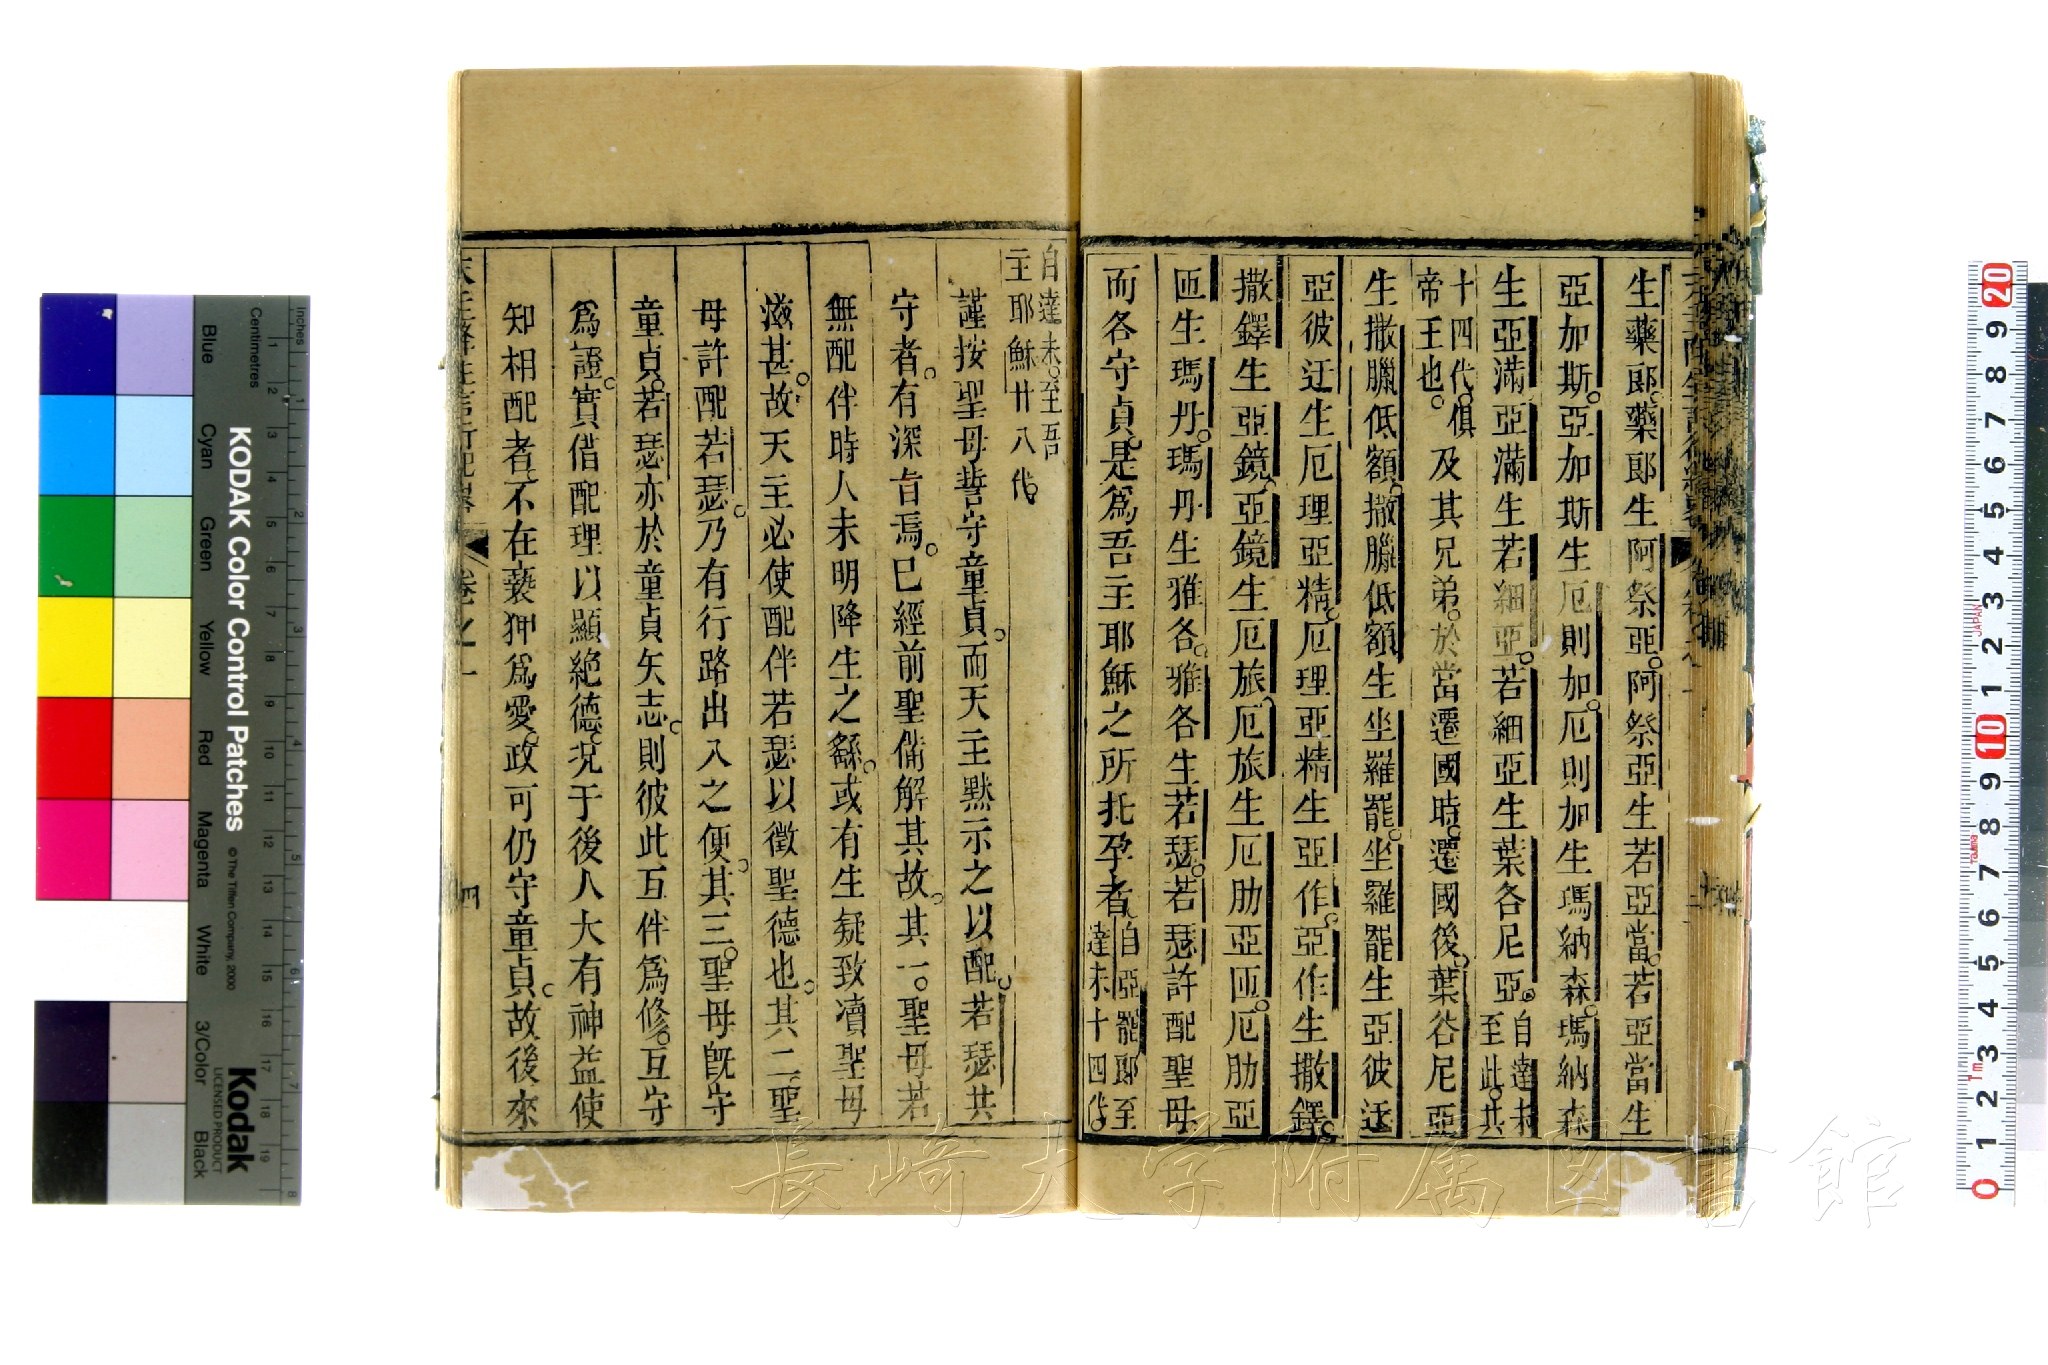 生藥郎藥郎生阿祭亞。阿祭亞生若亞當。若亞當生
亞加斯。亞加斯生厄則加。厄則加生瑪納森。瑪納森
生亞滿亞滿生若細亞。若細亞生葉各尼亞。自達未至此。共
十四代。俱帝王也。及其兄弟。於當遷國時。遷國後。葉各尼亞
生撒臘低額。撒臘低額生坐羅罷。坐羅罷生亞彼迂
亞彼迂生厄理亞精。厄理亞精生亞作。亞作生撒鐸。
撒鐸生亞鏡。亞鏡生厄旅。厄旅生厄肋亞匝。厄肋亞
匝生瑪丹。瑪丹生雅各。雅各生若瑟。若瑟許配聖母
而各守貞。是爲吾主耶穌之所托孕者。自亞罷郎至達未十四代。
自達未。至吾主耶穌廿八代。
謹按聖母誓守童貞。而天主默示之以配。若瑟共
守者。有深旨焉。已經前聖備解其故。其一。聖母若
無配伴時人未明降生之繇。或有生疑致瀆聖母
滋甚。故天主必使配伴若瑟以徵聖德也。其二聖
母許配若瑟。乃有行路出入之便。其三。聖母旣守
童貞。若瑟亦於童貞矢志。則彼此互伴爲修。互守
爲證。實借配理以顯絶德。況于後人大有神益使
知相配者。不在褻狎爲愛。政可仍守童貞。故後來
卷之一
四
KODAK Color Control Patches
© The Tiffen Company, 2000
Kodak
LICENSED PRODUCT
Inches
Centimetres
Blue
Cyan
Green
Yellow
Red
Magenta
White
3/Color
Black
JAPAN
Tajima
長崎大学附属図書館